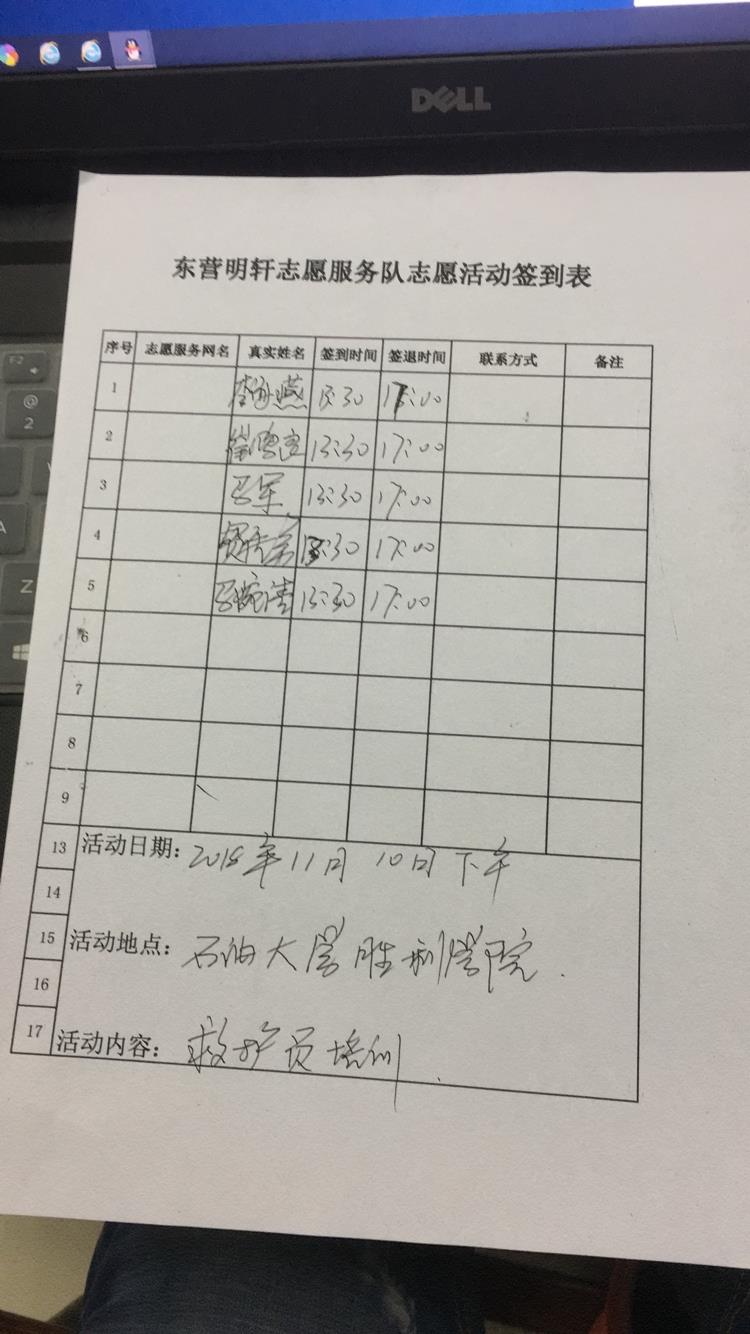 DELL
东营明轩志愿服务队志愿活动签到表
序号 志愿服务网名 真实姓名 签到时间 签退时间 联系方式 备注
1 李海燕 13:30 17:00
2 13:30 17:00
3 马军 13:30 17:00
4 13:30 17:00
5 马婉清 13:30 17:00
6
7
8
9
13 活动日期: 2018年11月10日下午
14
15 活动地点: 石油大学胜利学院.
16
17 活动内容: 救护员培训.
F2
@
2
A
Z